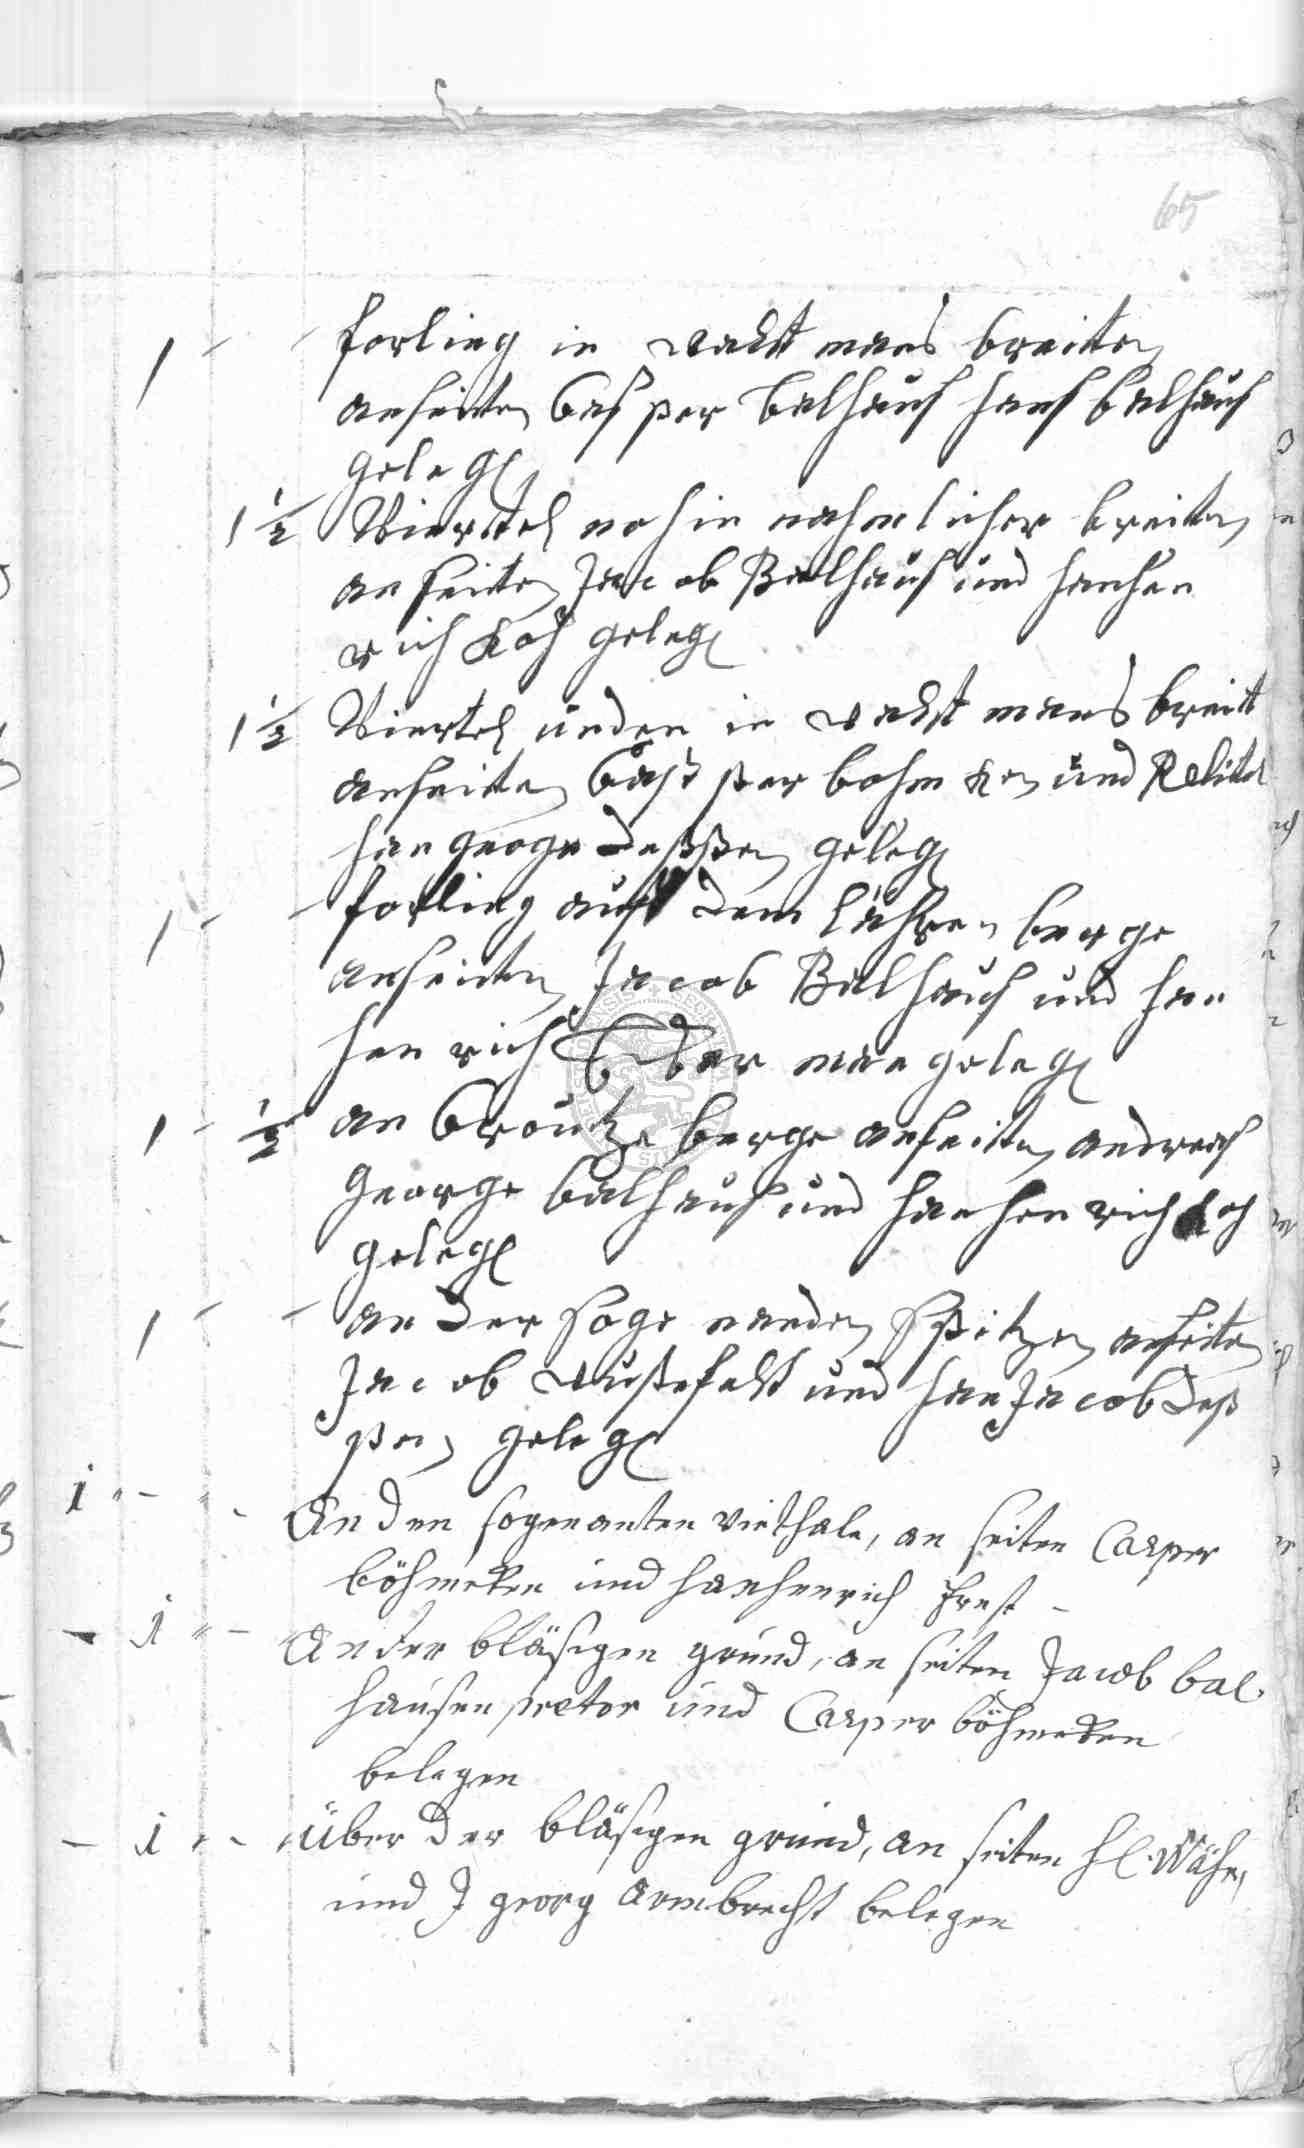 65
1 - - forling in wadst mans breiten
anseiten Casper balhauß hans balhauß
gelegen
1 1/2 Viertel noh in nahmlicher breiten
an seiten Jacob Balhauß und hanhen
rich Koh gelegen
1 1/2 Viertel unden in wadst mans breit
anseiten Casper bohmken und Relicta
han georgr Deppen gelegen
1 - - forling auf dem berge
anseiten Jacob Balhauß und han
henrich Elder man gelegen
1 - 1/2 an Creutze berge anseiten andreas
George balhauß und hanhenrich Koch
gelegen
1 - - an der soge nanden Spitzen anseiten
Jacob wustefeldt und han Jacob Dep
pen gelegen
1 - - - An den sogenanten viethale, an seiten Casper
böhmeken und hanhenrich Frost
- 1 - - An der bläsigen grund, an seiten Jacob bal-
hausen und Casper böhmeken
belegen
- 1 - - Über der bläsigen grund, an seiten
und J georg Armbrecht belegen